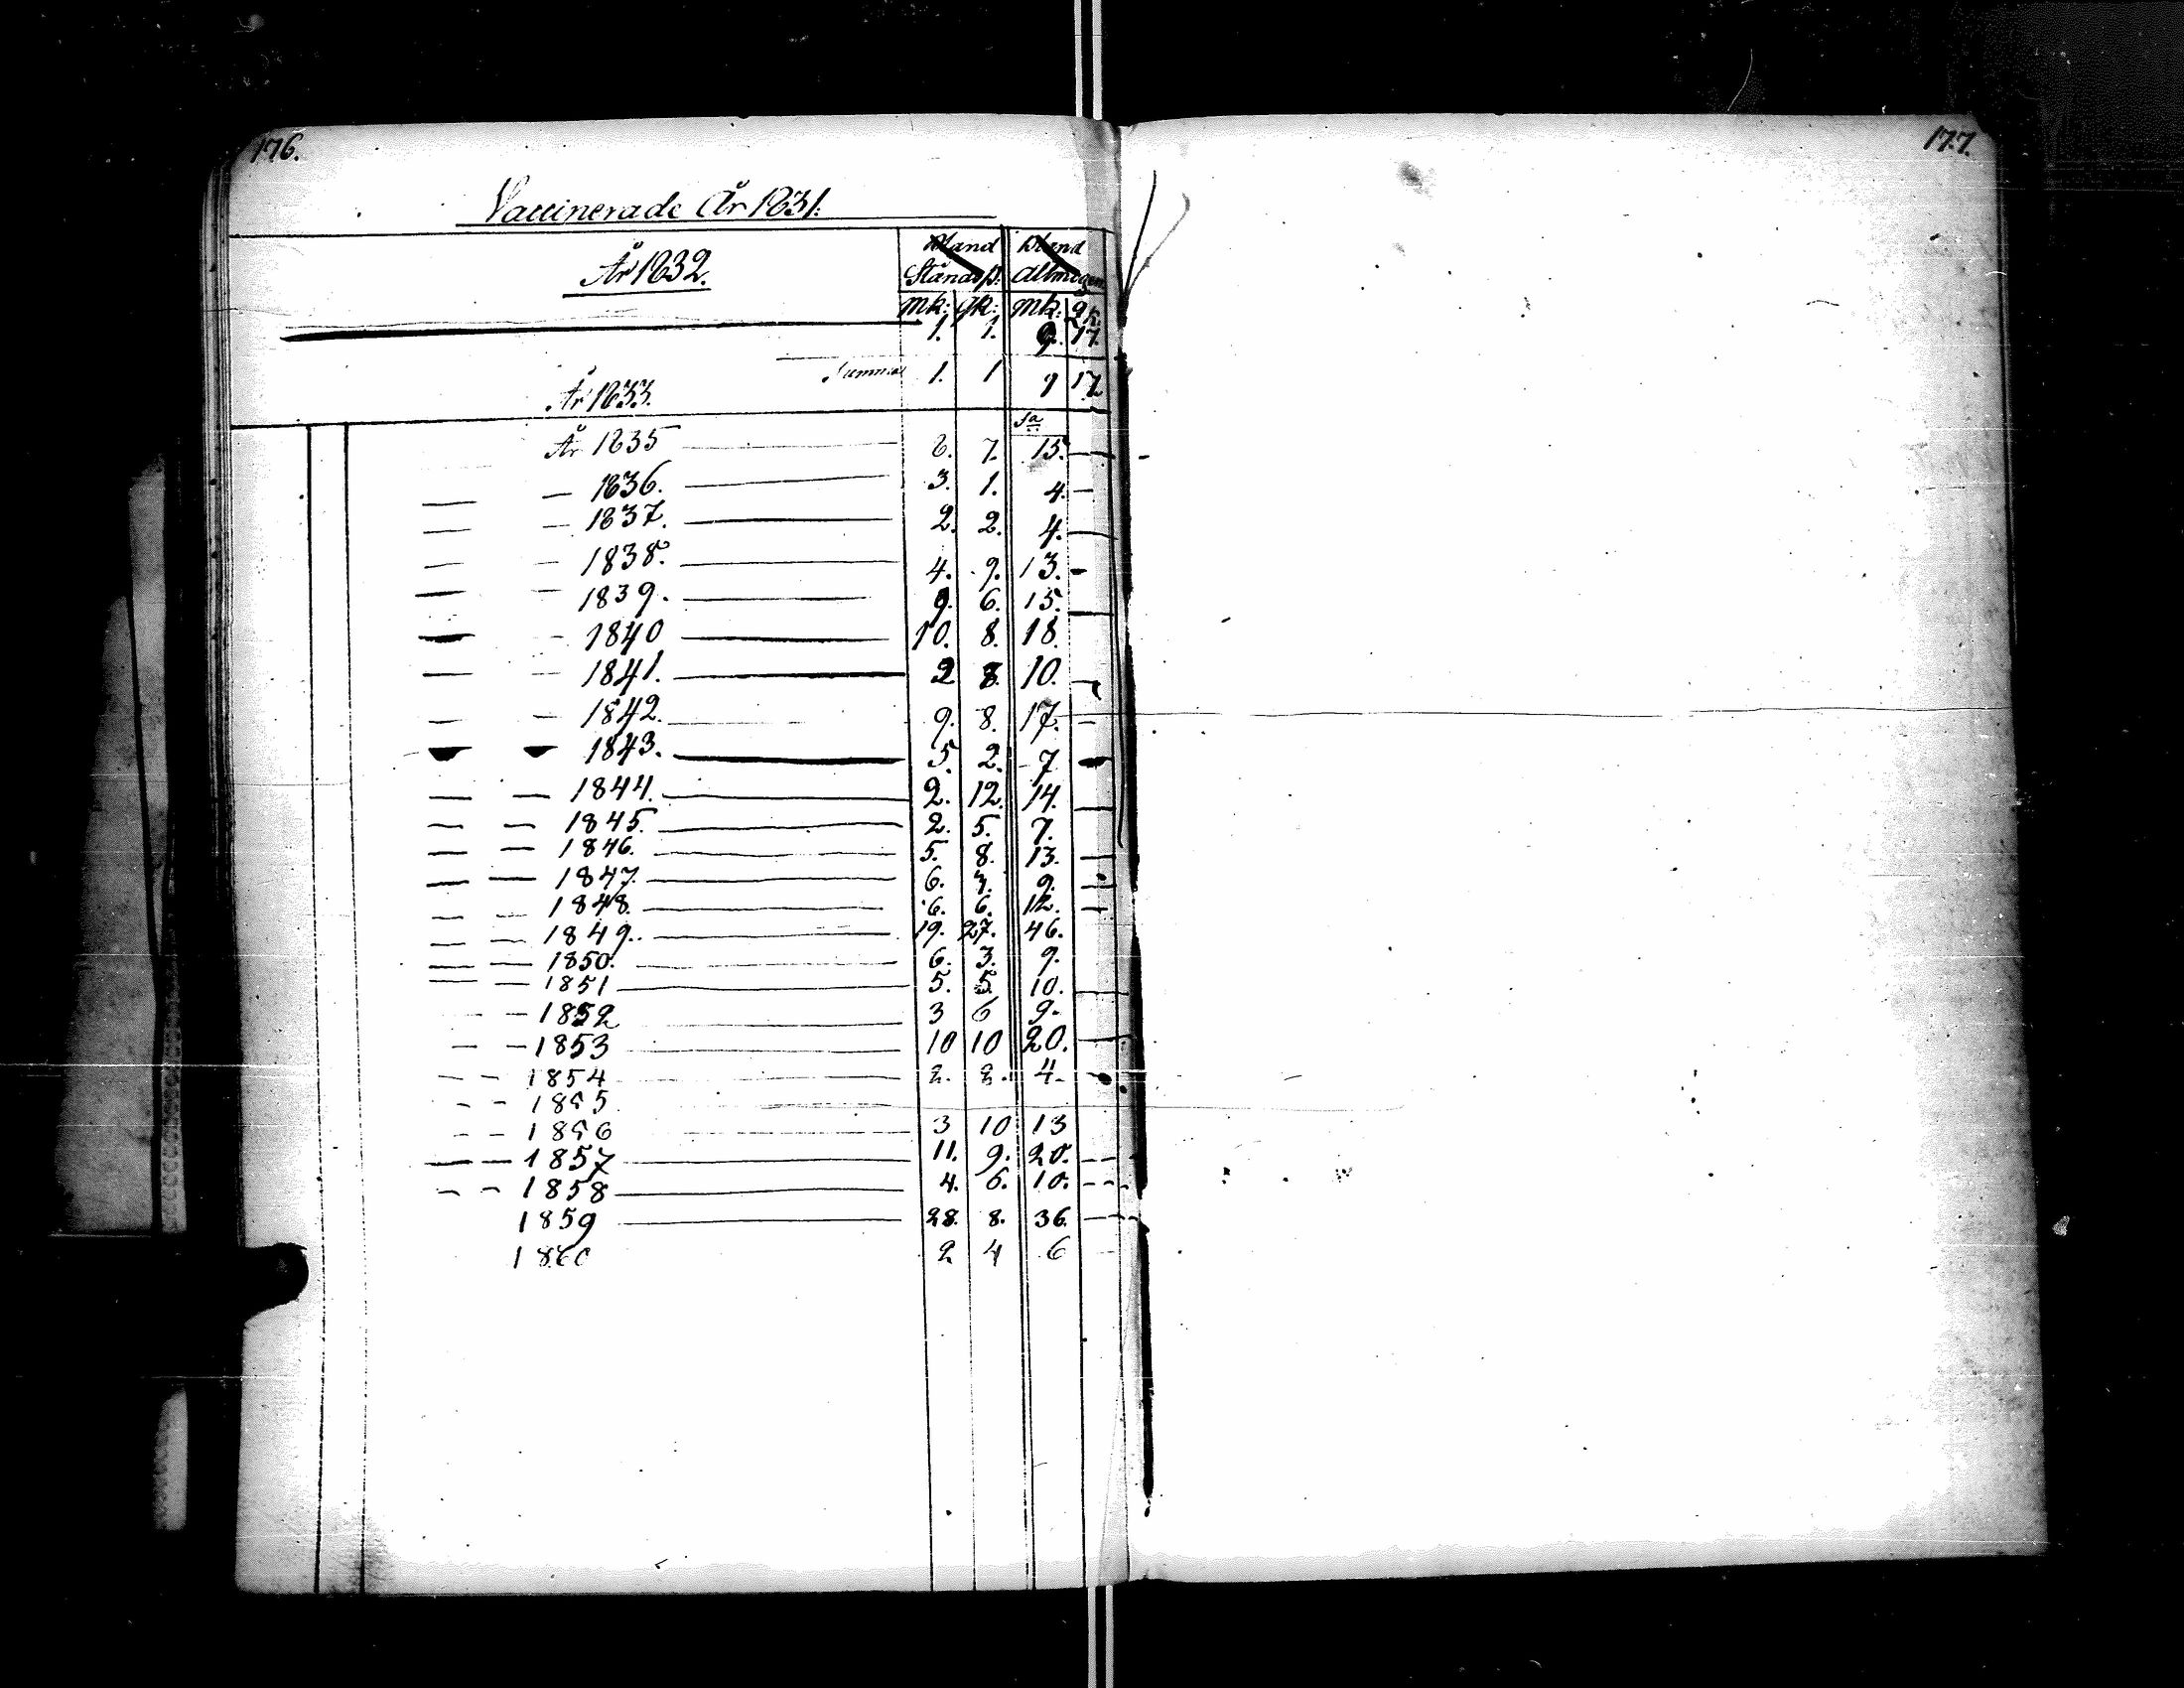 176.
177.
Vaccinerade År 1831.
År 1832.
bland bland
Ståndsp: Allmogen
Mk: Qk: Mk: Qk:
1. 1. 9. 17.
Summa 1. 1 9 17
År 1833.
Sa
År 1835 — 8. 7. 15. —
— — 1836. — 3. 1. 4. —
— — 1837. — 2. 2. 4. —
— — 1838. — 4. 9. 13. —
— — 1839. — 9. 6. 15. —
— — 1840 — 10. 8. 18.
— — 1841. — 2 8 10. —
— — 1842. — 9. 8. 17. —
— — 1843. — 5. 2. 7 —
— — 1844. — 2. 12. 14. —
— — 1845. — 2. 5. 7.
— — 1846. — 5. 8. 13. —
— — 1847. — 6. 3. 9. —
— — 1848. — 6. 6. 12. —
— — 1849. — 19. 27. 46.
— — 1850. — 6. 3. 9.
— — 1851 — 5. 5. 10. —
— — 1852 — 3 6 9.
— — 1853 — 10 10 20. —
— — 1854 — 2. 2. 4. —
— — 1855
— — 1856 — 3 10 13
— — 1857 — 11. 9. 20. —
— — 1858 — 4. 6. 10. —
1859 — 28. 8. 36. —
1860 2 4 6